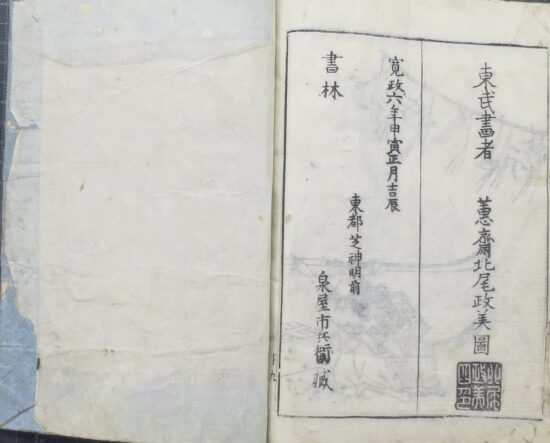 東武畫者　蕙齋北尾政美圖
寛政六年甲寅正月吉辰
東都芝神明前
書林　泉屋市兵衞藏
十九